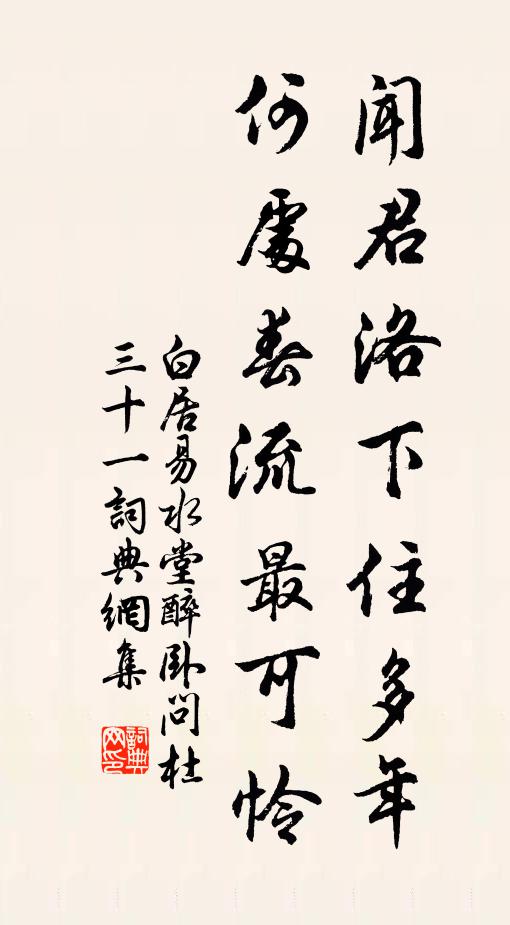 闻君洛下住多年
何處春流最可怜
白居易水堂醉卧问杜
三十一詞典網集
詞典網印